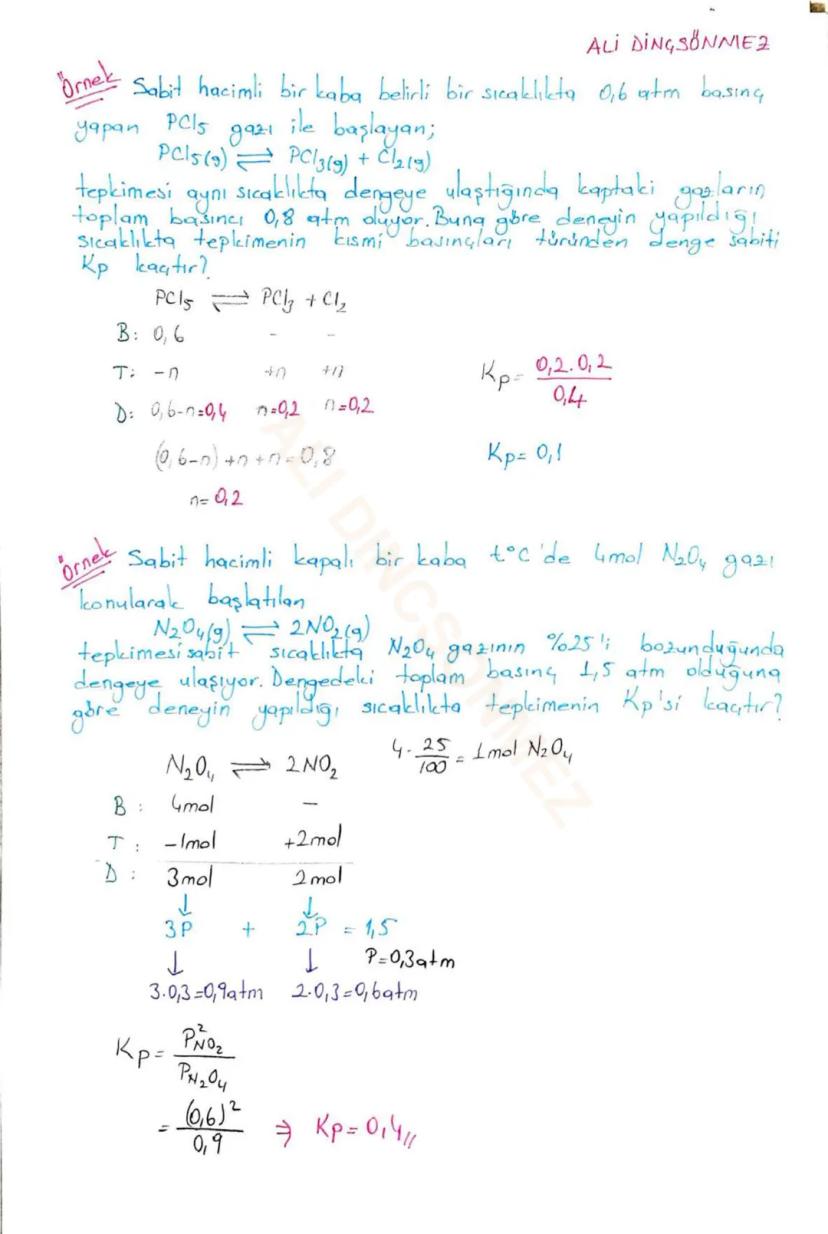 ALİ DİNÇSÖNMEZ
Örnek Sabit hacimli bir kaba belirli bir sıcaklıkta 0,6 atm basınç
yapan PCl5 gazı ile başlayan;
PCl5(g) ⇌ PCl3(g) + Cl2(g)
tepkimesi aynı sıcaklıkta dengeye ulaştığında kaptaki gazların
toplam basıncı 0,8 atm oluyor. Buna göre deneyin yapıldığı
sıcaklıkta tepkimenin kısmi basınçları türünden denge sabiti
Kp kaçtır?
PCl5 ⇌ PCl3 + Cl2
B: 0,6 - -
T: -n +n +n
D: 0,6-n=0,4 n=0,2 n=0,2
(0,6-n)+n+n=0,8
n=0,2
Kp= 0,2.0,2 / 0,4
Kp= 0,1
Örnek Sabit hacimli kapalı bir kaba t°C'de 4mol N2O4 gazı
konularak başlatılan
N2O4(g) ⇌ 2NO2(g)
tepkimesi sabit sıcaklıkta N2O4 gazının %25'i bozunduğunda
dengeye ulaşıyor. Dengedeki toplam basınç 1,5 atm olduğuna
göre deneyin yapıldığı sıcaklıkta tepkimenin Kp'si kaçtır?
4. 25/100 = 1mol N2O4
N2O4 ⇌ 2NO2
B: 4mol -
T: -1mol +2mol
D: 3mol 2mol
↓ ↓
3P + 2P = 1,5
↓ ↓ P=0,3atm
3.0,3=0,9atm 2.0,3=0,6atm
Kp= P²NO2 / PN2O4
= (0,6)² / 0,9 ⇒ Kp=0,4//
ALİ DİNÇSÖNMEZ